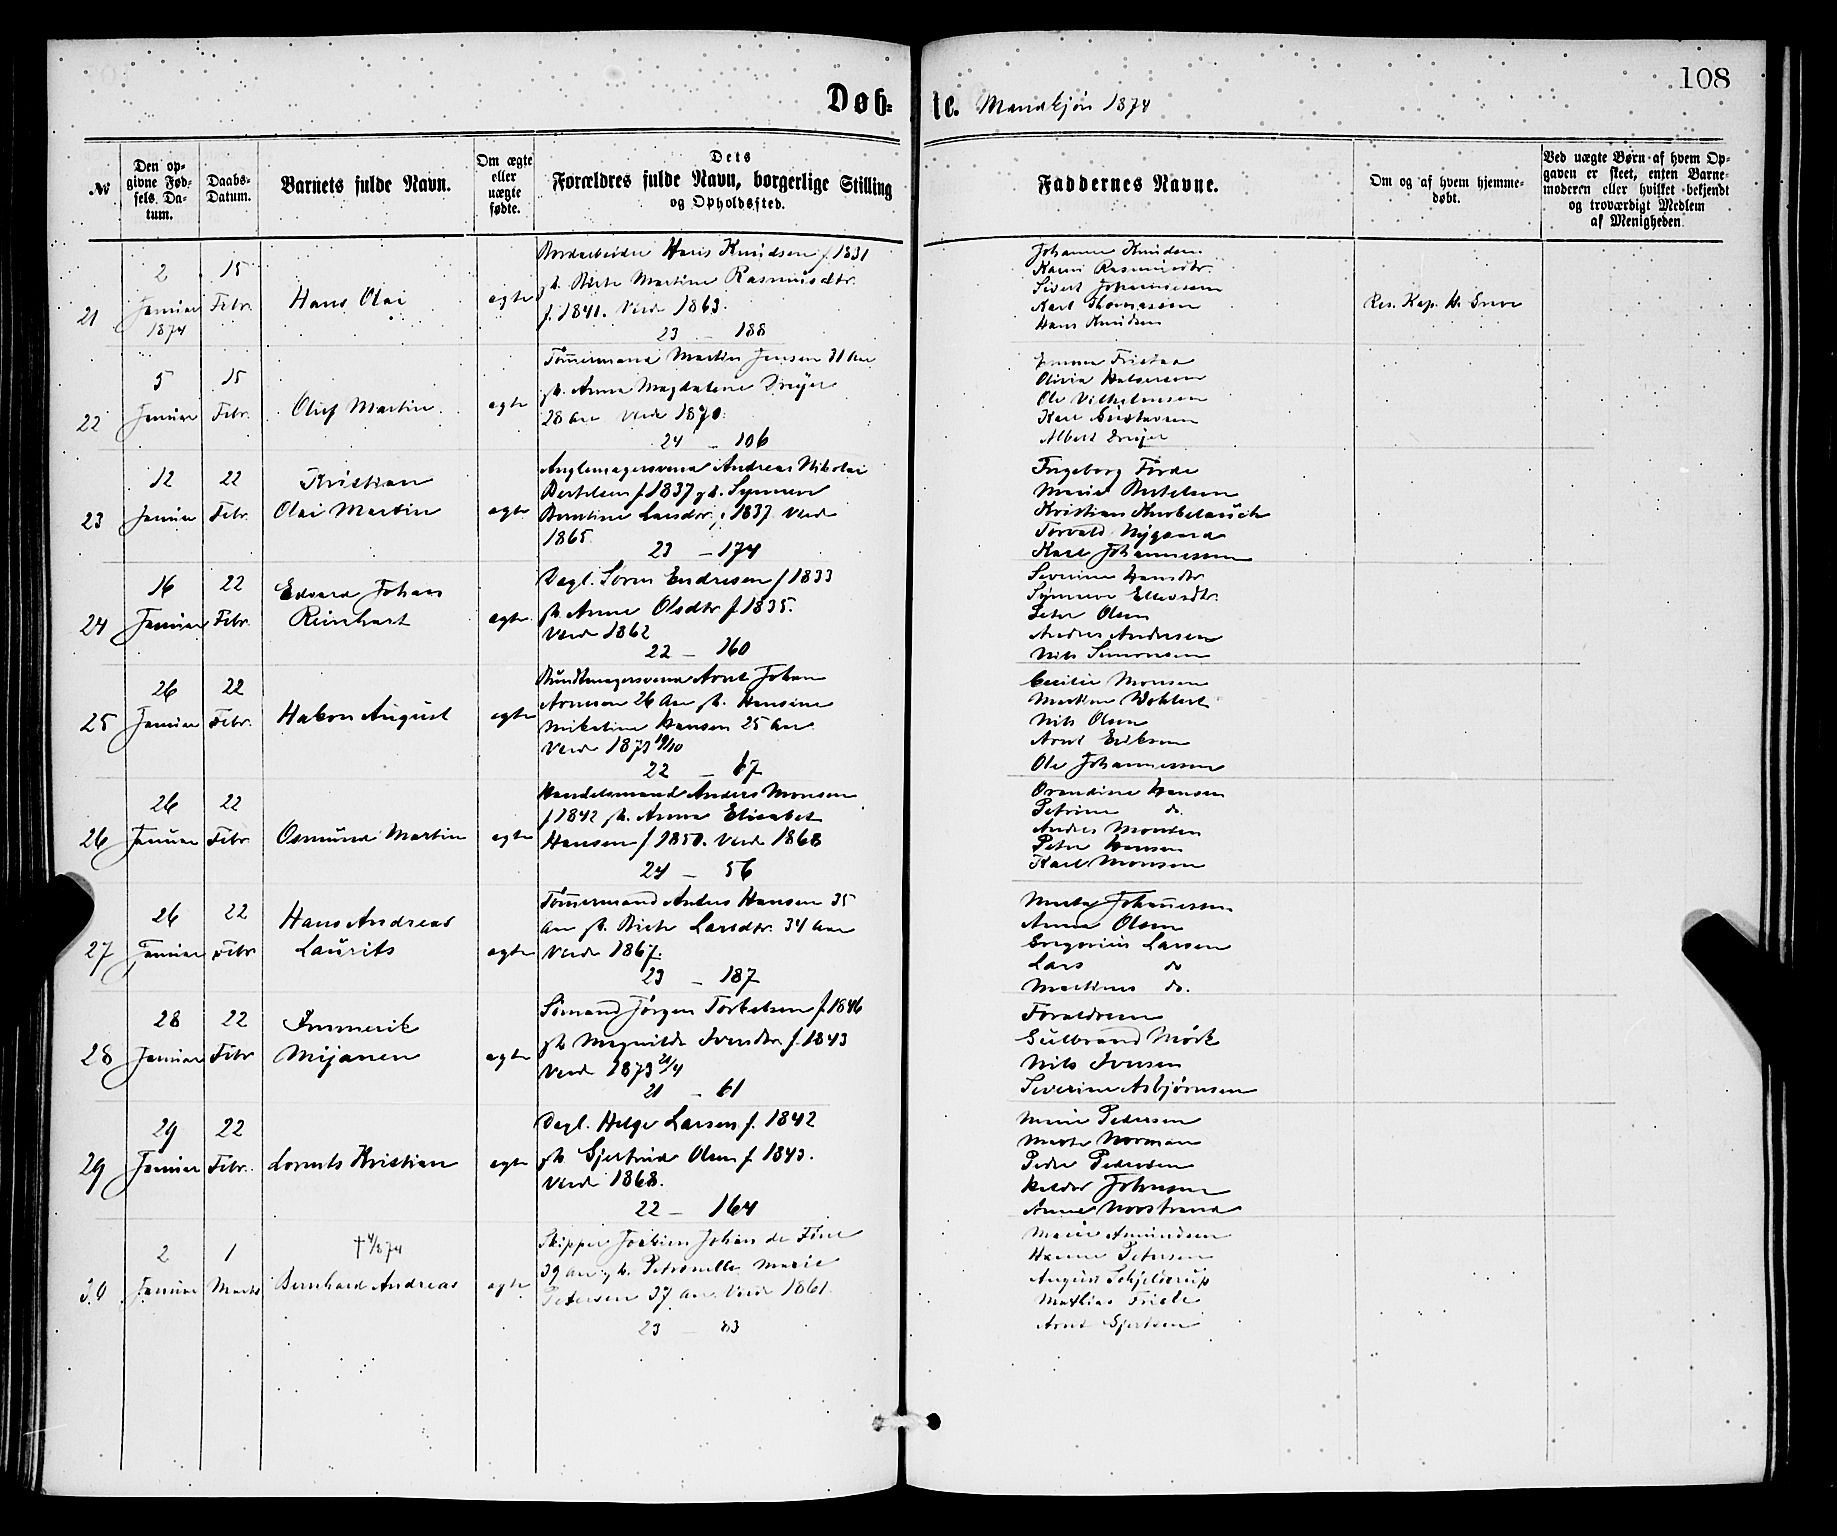 108
Døb- te. Mandkjøn 1874
No
Den op-
givne Fød-
sels. Da-
tum.
Daabs-
Datum.
Barnets fulde Navn.
Om ægte
eller
uægte
fødte.
Dets
Forældres fulde Navn, borgerlige Stilling
og Opholdssted.
Faddernes Navne.
Om og af hvem hjemme-
døbt.
Ved uægte Børn af hvem Op-
gaven er skeet, enten Barne-
moderen eller hvilket bekjendt
og troværdigt Medlem
af Menigheden.
21
2
Januar
1874
15
Febr.
Hans Olai
ægte
Hans Knudsen f. 1831
Martine Rasmusdtr.
f. 1841. Viede 1863.
23 – 188
Johanne Knudsen
Karen Rasmusdtr.
Sivert Johannesen
Karl Thomassen
Hans Knudsen
Res. Kap. H.
22
5
Januar
15
Febr.
Oluf Martin
ægte
Tømmermand Martin Jensen 31 Aar
h. Anna Magdalene Dreyer
28 Aar Viede 1870.
24 – 106
Olivia Halvorsen
Ole Vilhelmsen
Karl Gustavsen
Albert Dreyer
23
12
Januar
22
Febr.
Kristian
Olai Martin
ægte
Andreas Nikolai
Bertelsen f. 1837 h. Synneve
Berntine Larsdtr. f. 1837 Viede
1865.
23 – 174
Ingeborg Førde
Marie Bertelsen
Kristian
Torvald Nygaard
Karl Johannessen
24
16
Januar
22
Febr.
Edvard Johan
Reinhart
ægte
Dagl. Søren Endresen f 1833
h. Anne Olsdtr f. 1835.
Viede 1862
22 – 160
Severine Hansdtr
Synneve
Peter Olsen
Andrea Andresen
Nils Simonsen
25
26
Januar
22
Febr.
Hakon August
ægte
Bundtmagersvend Arnt Johan
Arneson 26 Aar h. Hansine
Mikeline Hansen 25 Aar
Viede 1873 19/10
22 – 67
Cecilie Monsen
Nils Olsen
Arnt Eriksen
Ole Johannessen
26
26
Januar
22
Febr.
Osmund Martin
ægte
Handelsmand Anders Monsen
f 1842 h. Anna Elisabet
Hansen f 1850. Viede 1868
24 – 56
Hansen
Petrine do.
Andres Monsen
Peter Hansen
Karl Monsen
27
26
Januar
22
Febr
Hans Andreas
Laurits
ægte
Tømmermand Anders Hansen 35
Aar h. Larsdtr. 34 Aar
Viede 1867.
23 – 187
Johannessen
Anna Olsen
Gregorius Larsen
Lars do
Martinus do.
28
28
Januar
22
Febr
Immerik
Mijanen
ægte
Sømand Jørgen Torkelsen f. 1846
h. Magnilde Iversdtr f. 1843
Viede 1873 21/4
21 – 61
Forældrene
Gulbrand Mørk
Nils Iversen
Severine Asbjørnsen
29
29
Januar
22
Febr.
Lorents Kristian
ægte
Dagl. Helge Larsen f. 1842
h. Gjertrude Olsen f 1843.
Viede 1868.
22 – 164
Marie Pedersen
Marta Norman
Peder Pedersen
Peder Johnsen
Anna Norstrand
30
2
Januar
1
Marts
† 4/8 74
Bernhard Andreas
ægte
Skipper Joakim Johan de Fine
39 Aar, h. Petronella Marie
Petersen 37 Aar. Viede 1861.
23 – 83
Marie Amundsen
Hanne Petersen
August Schjelderup
Mathias Friele
Arnt Gjertsen